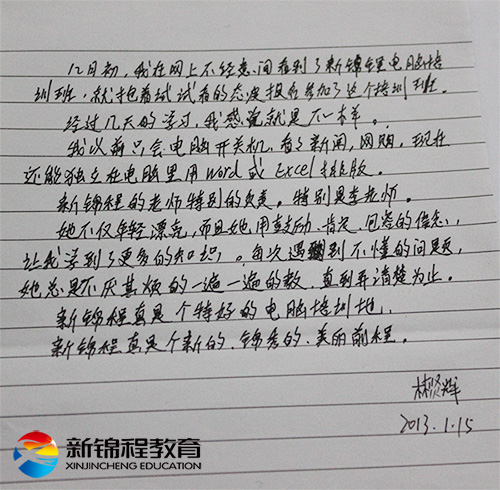 12月初,我在网上不经意间看到了新锦程电脑培
训班,就抱着试试看的态度报名参加了这个培训班。
经过几天的学习,我感觉就是不一样。
我以前只会电脑开关机,看了新闻,网购,现在
还能独立在电脑里用word或Excel排版。
新锦程的老师特别的负责。特别是李老师。
她不仅年轻漂亮,而且她用鼓励、肯定、包容的信念,
让我学到了更多的知识,。每次遇到不懂的问题,
她总是不厌其烦的一遍一遍的教,直到弄清楚为止。
新锦程真是个特好的电脑培训地,
新锦程真是个新的、锦秀的、美丽前程。
2013.1.15
新锦程教育
XINJINCHENG EDUCATION